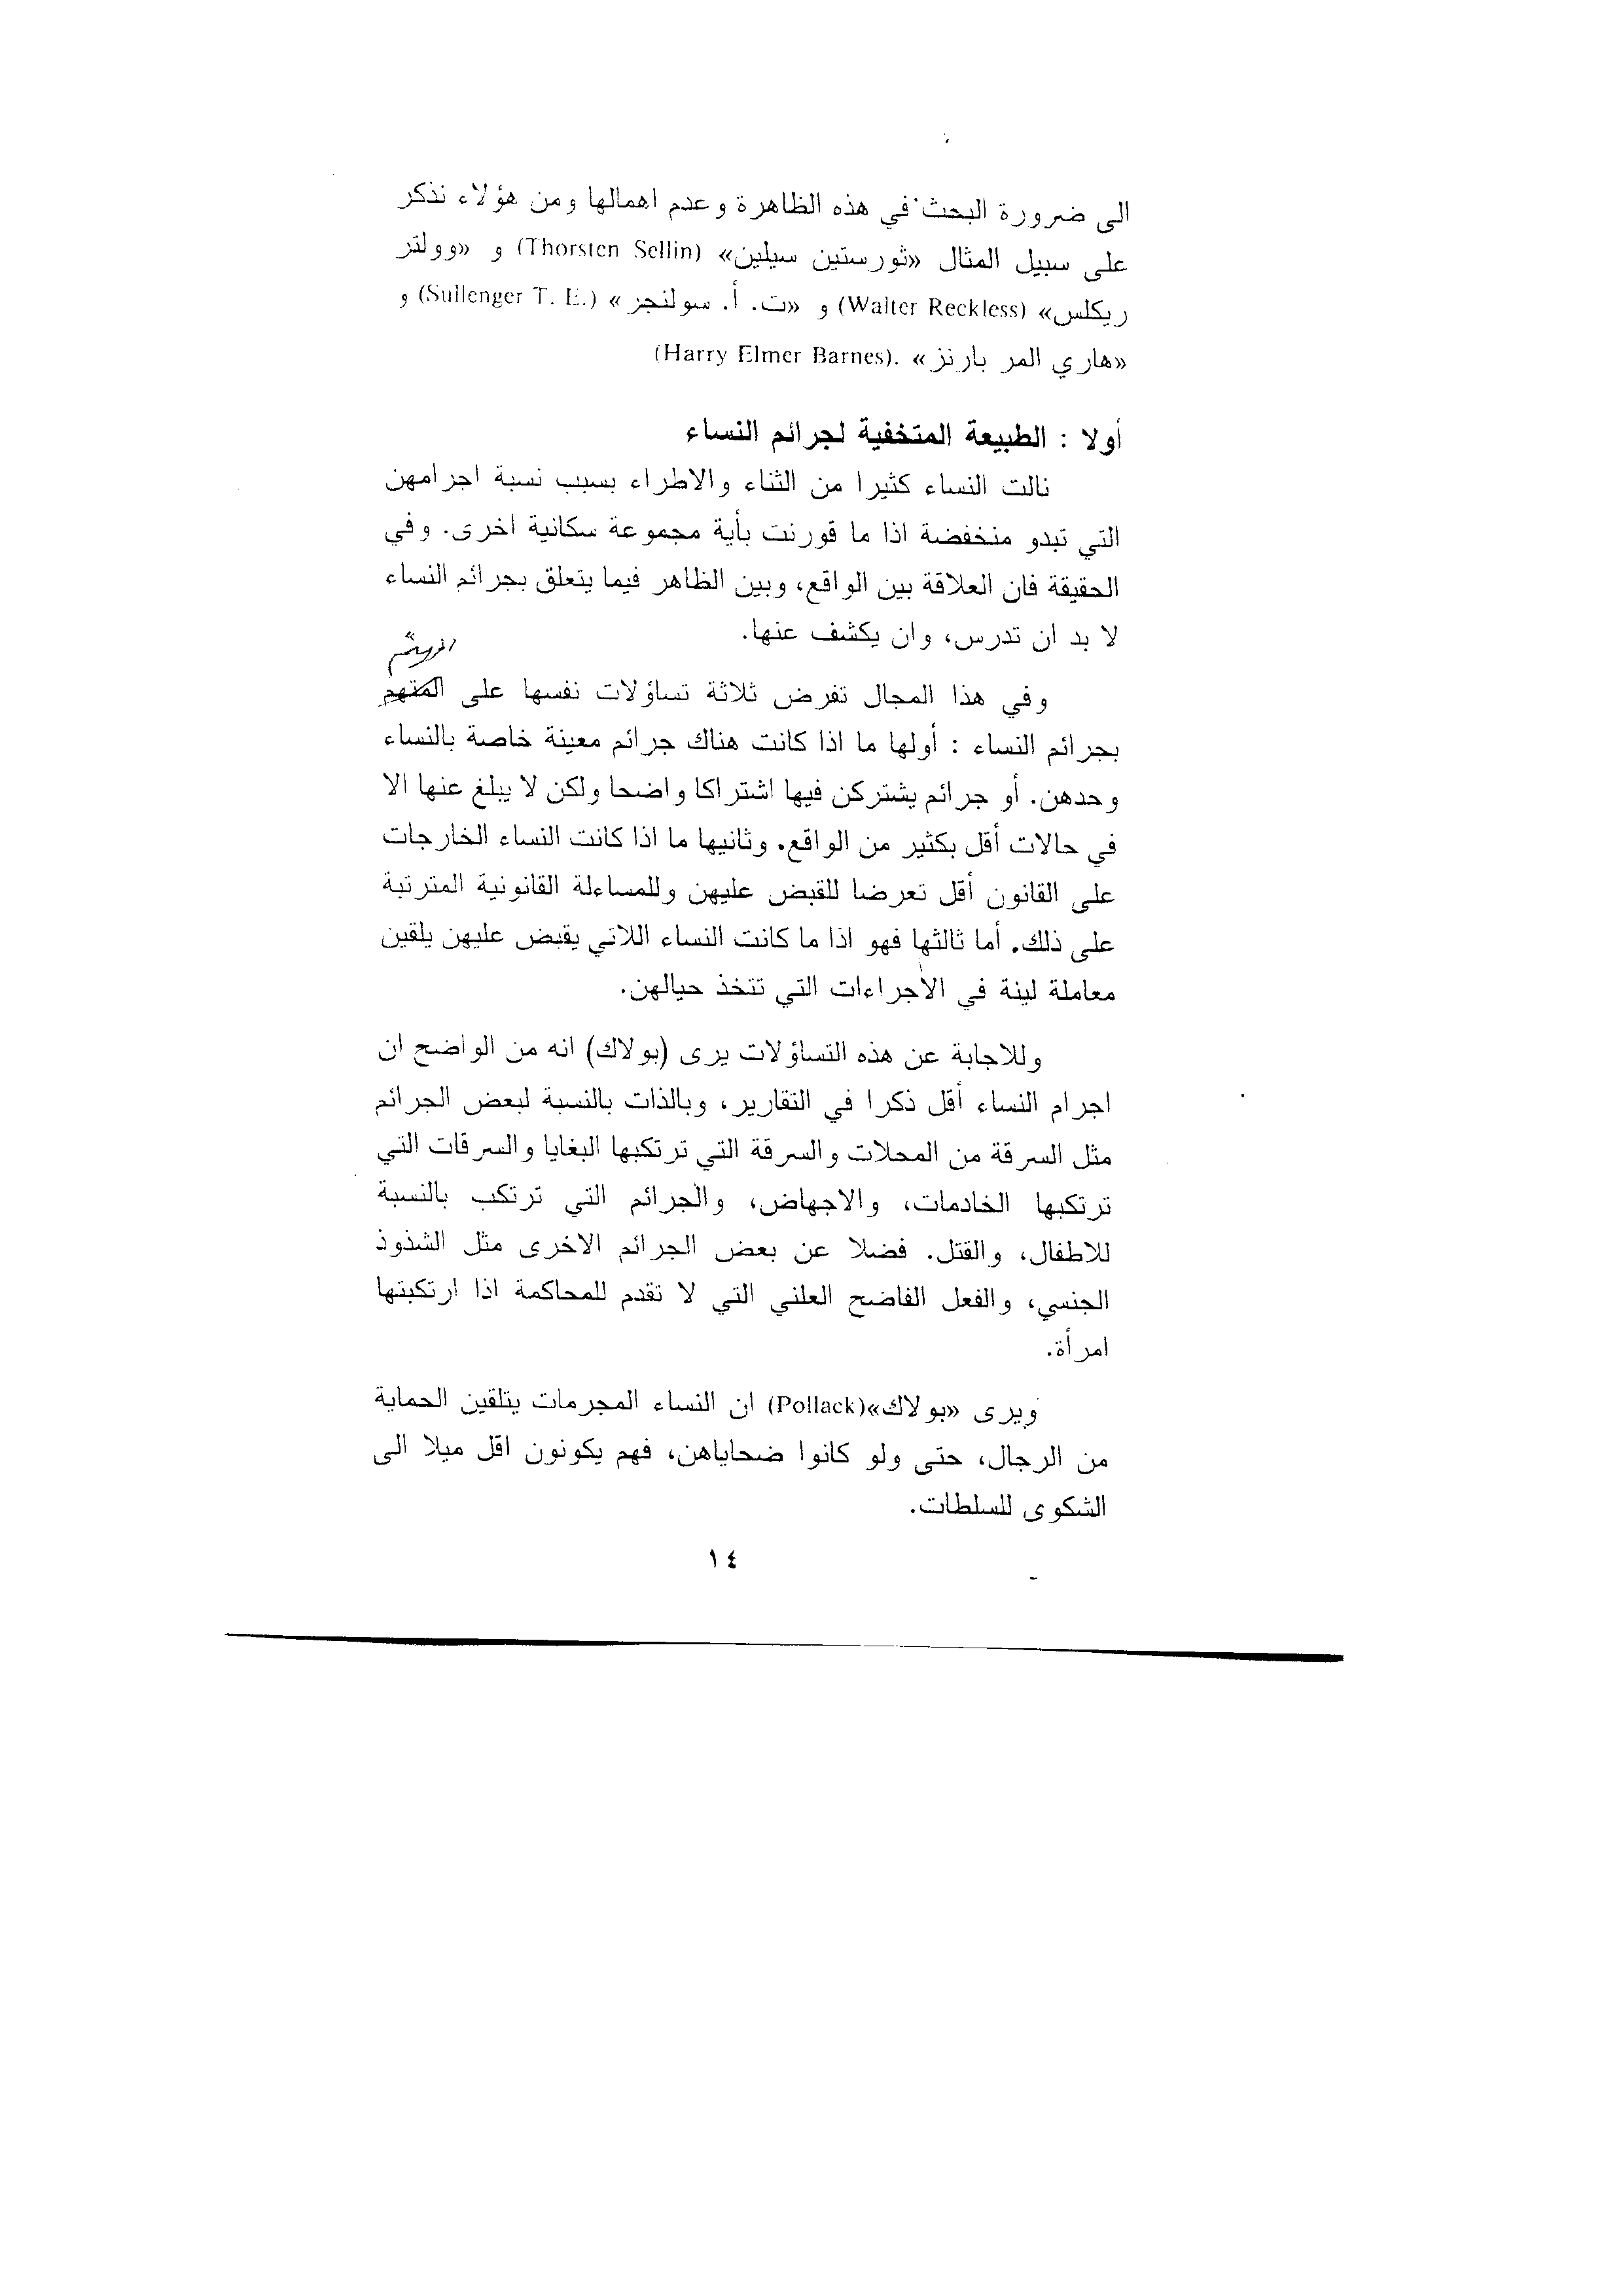 الى ضرورة البحث في هذه الظاهرة وعدم اهمالها ومن هؤلاء نذكر
على سبيل المثال «ثورستين سيلين» (Thorsten Sellin) و «وولتر
ريكلس» (Walter Reckless) و «ت. أ. سولنجز» (Sullenger T. E.) و
«هاري المر بارنز» .(Harry Elmer Barnes)
أولا : الطبيعة المتخفية لجرائم النساء
نالت النساء كثيرا من الثناء والاطراء بسبب نسبة اجرامهن
التي تبدو منخفضة اذا ما قورنت بأية مجموعة سكانية اخرى. وفي
الحقيقة فان العلاقة بين الواقع، وبين الظاهر فيما يتعلق بجرائم النساء
لا بد ان تدرس، وان يكشف عنها.
وفي هذا المجال تفرض ثلاثة تساؤلات نفسها على المتهم
بجرائم النساء : أولها ما اذا كانت هناك جرائم معينة خاصة بالنساء
وحدهن. أو جرائم يشتركن فيها اشتراكا واضحا ولكن لا يبلغ عنها الا
في حالات أقل بكثير من الواقع. وثانيها ما اذا كانت النساء الخارجات
على القانون أقل تعرضا للقبض عليهن وللمساءلة القانونية المترتبة
على ذلك. أما ثالثها فهو اذا ما كانت النساء اللاتي يقبض عليهن يلقين
معاملة لينة في الأجراءات التي تتخذ حيالهن.
وللاجابة عن هذه التساؤلات يرى (بولاك) انه من الواضح ان
اجرام النساء أقل ذكرا في التقارير، وبالذات بالنسبة لبعض الجرائم
مثل السرقة من المحلات والسرقة التي ترتكبها البغايا والسرقات التي
ترتكبها الخادمات، والاجهاض، والجرائم التي ترتكب بالنسبة
للاطفال، والقتل. فضلا عن بعض الجرائم الاخرى مثل الشذوذ
الجنسي، والفعل الفاضح العلني التي لا تقدم للمحاكمة اذا ارتكبتها
امرأة.
ويرى «بولاك»(Pollack) ان النساء المجرمات يتلقين الحماية
من الرجال، حتى ولو كانوا ضحاياهن، فهم يكونون اقل ميلا الى
الشكوى للسلطات.
١٤